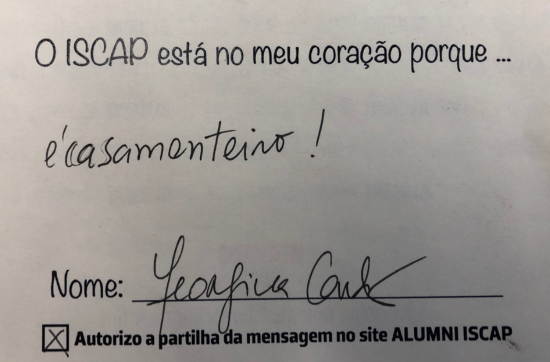 O ISCAP está no meu coração porque ...
é casamenteiro!
Nome: Georgina
☒ Autorizo a partilha da mensagem no site ALUMNI ISCAP